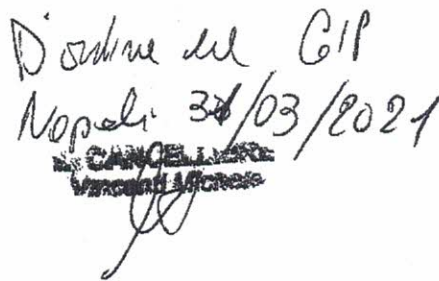 D'ordine del GIP
Napoli 31/03/2021
IL CANCELLIERE
Michele